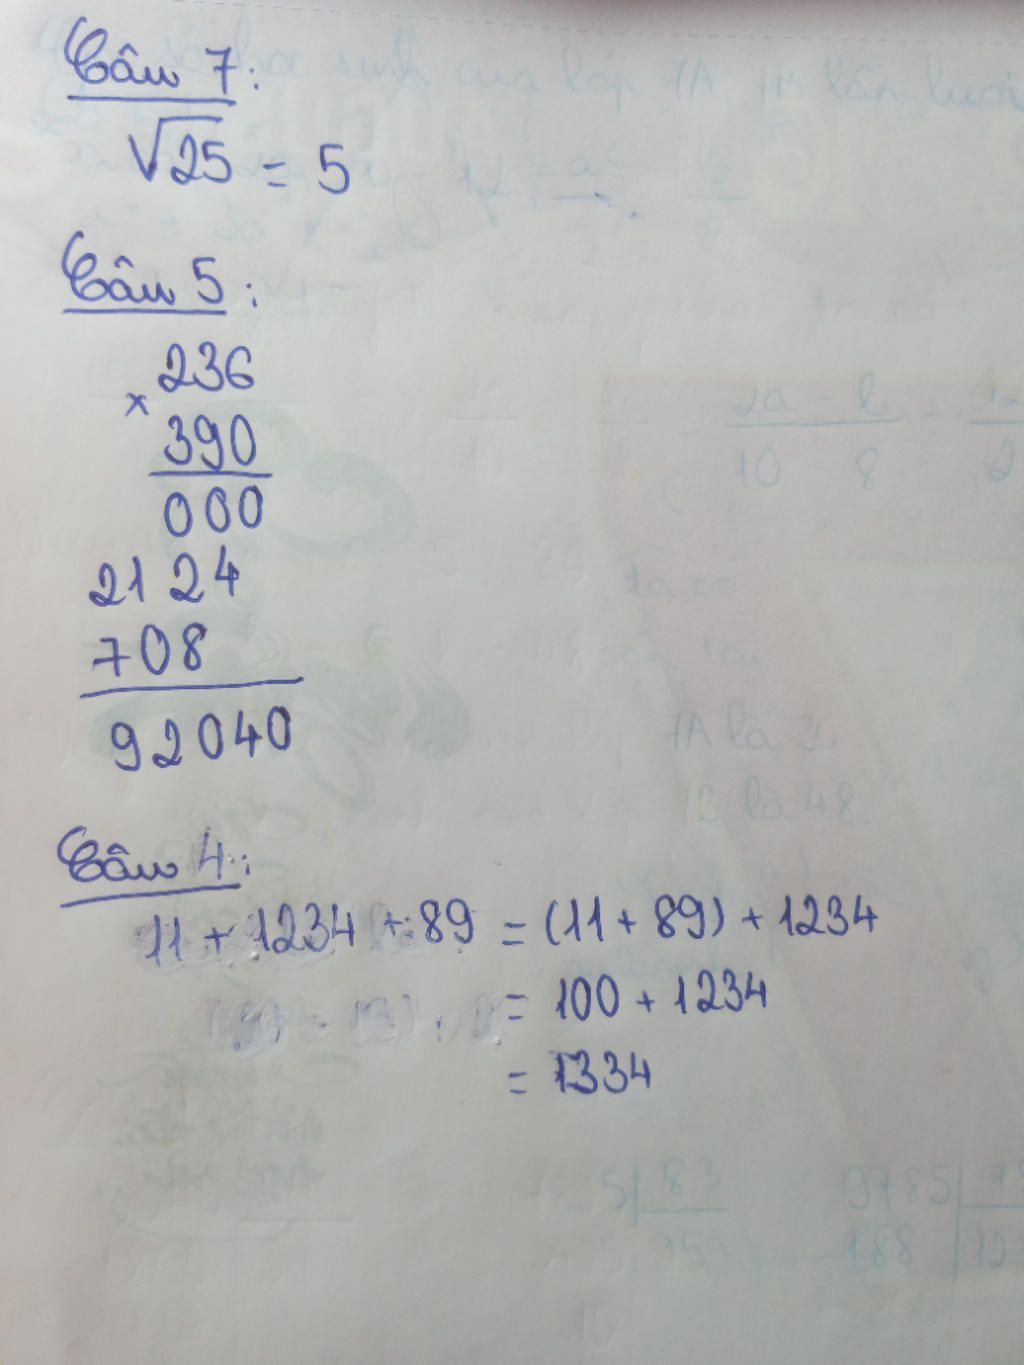 Câu 7:
√25 = 5
Câu 5:
236
×
390
000
2124
708
92040
Câu 4:
11 + 1234 + 89 = (11 + 89) + 1234
= 100 + 1234
= 1334